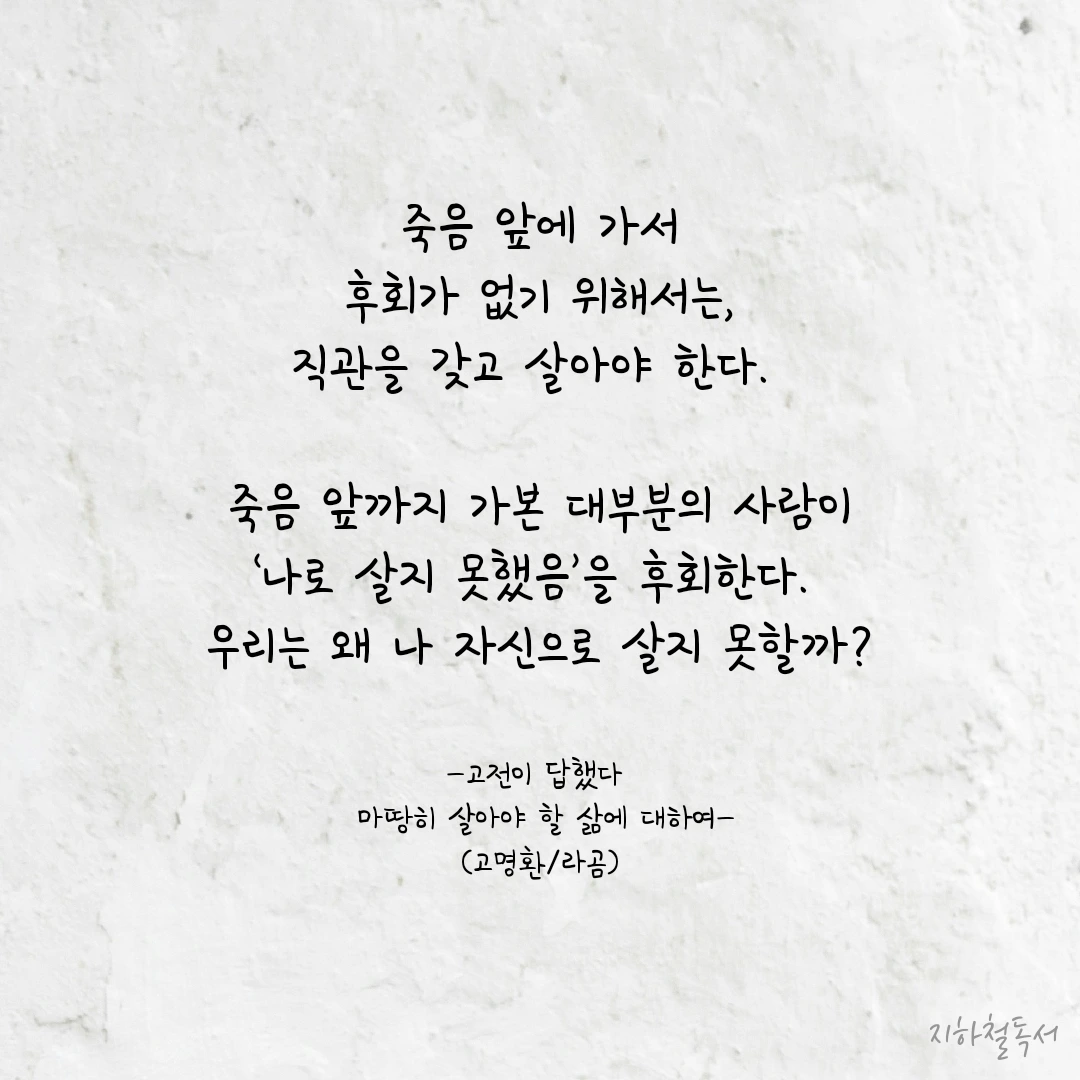 죽음 앞에 가서
후회가 없기 위해서는,
직관을 갖고 살아야 한다.
죽음 앞까지 가본 대부분의 사람이
‘나로 살지 못했음’을 후회한다.
우리는 왜 나 자신으로 살지 못할까?
-고전이 답했다
마땅히 살아야 할 삶에 대하여-
(고명환/라곰)
지하철독서